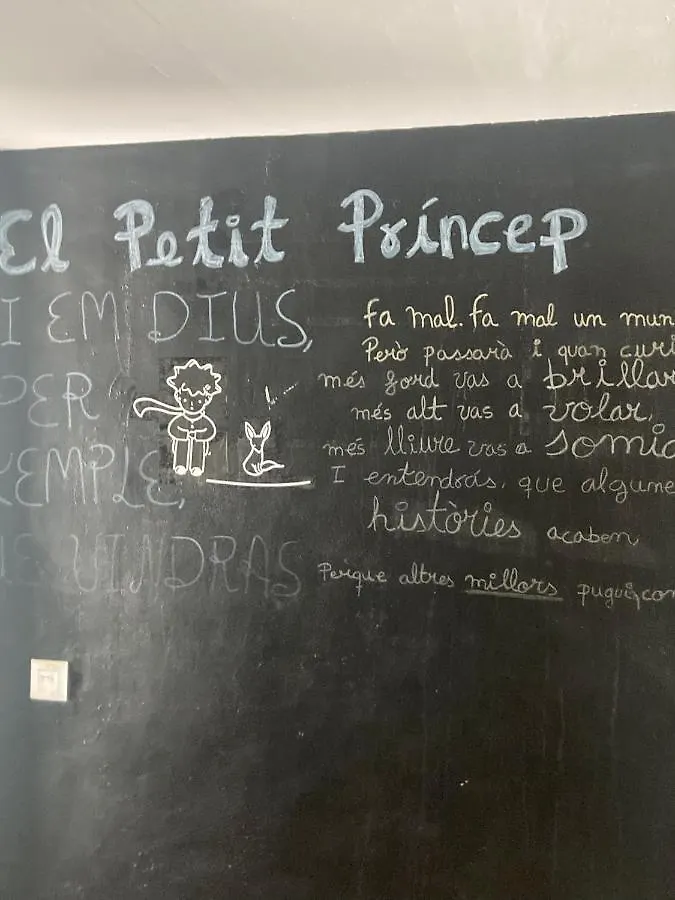 El Petit Príncep
I EM DIUS,
PER
XEMPLE,
VINDRAS
fa mal. fa mal un mun
Però passarà i quan curi
més ford vas a brillar
més alt vas a volar,
més lliure vas a somia
I entendrás, que algune
històries acaben
Perque altres millors puguin com